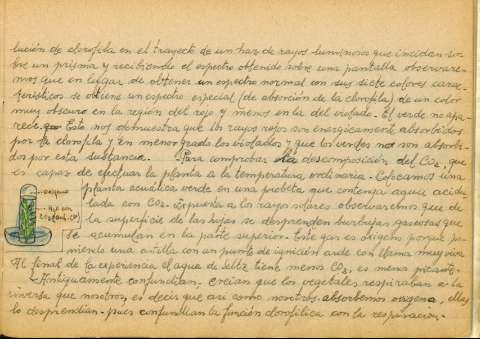 lución de clorofila en el trayecto de un haz de rayos luminosos que incidan so-
bre un prisma y recibiendo el espectro obtenido sobre una pantalla observare-
mos que en lugar de obtener un espectro normal con sus siete colores carac-
terísticos se obtiene un espectro especial (de absorción de la clorofila) de un color
muy obscuro en la región del rojo y menos en la del violado. El verde no apa-
rece. Esto nos demuestra que los rayos rojos son energicamente absorbidos
por la clorofila y en menor grado los violados y que los verdes no son absorbi-
dos por esta substancia. Para comprobar la descomposición del CO2, que
es capaz de efectuar la planta a la temperatura ordinaria. Colocamos una
planta acuática verde en una probeta que contenga agua acidu-
lada con CO2. Expuesta a los rayos solares observaremos que de
la superficie de las hojas se desprenden burbujas gaseosas que
se acumulan en la parte superior. Este gas es oxígeno porque po-
niendo una astilla con un punto de ignición arde con llama muy viva
Al final de la experiencia el agua de seltz tiene menos CO2, es menos picante.
Antiguamente confundían, creían que los vegetales respiraban a la
inversa que nosotros, es decir que así como nosotros absorbemos oxígeno, ellas
lo desprendían pues confundían la función clorofílica con la respiración.
oxígeno